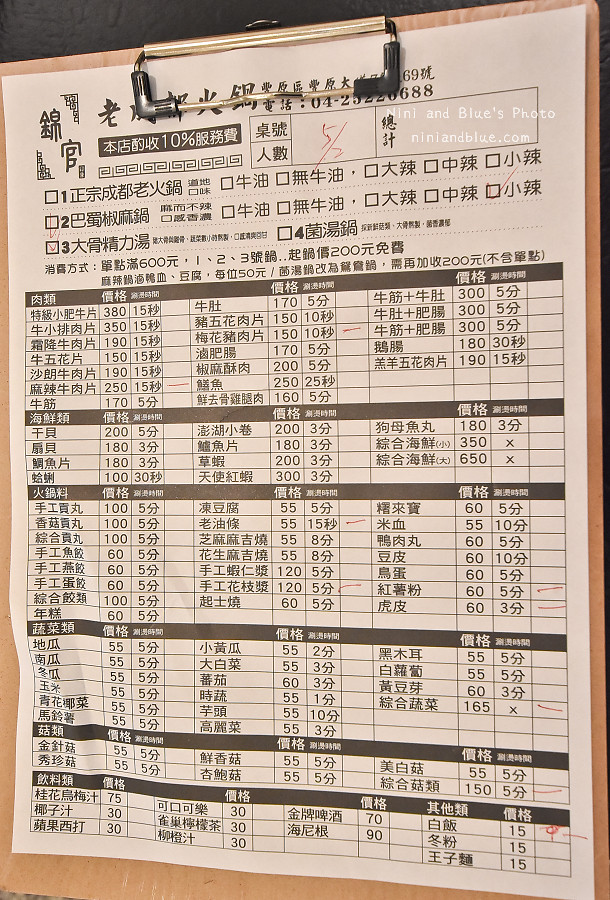 錦官 老成都火鍋 豐原區豐原大道
69號
電話：04-25220688
Nini and Blue's Photo
niniandblue.com
本店酌收10%服務費
桌號 5/2 總計
人數
□1正宗成都老火鍋 道地口味 □牛油 □無牛油，□大辣 □中辣 □小辣
□2巴蜀椒麻鍋 麻而不辣 口感香濃 □牛油 □無牛油，□大辣 □中辣 □小辣
□3大骨精力湯 □4菌湯鍋
消費方式：單點滿600元，1、2、3號鍋..起鍋價200元免費
麻辣鍋滷鴨血、豆腐，每位50元/菌湯鍋改為鴛鴦鍋，需再加收200元(不含單點)
肉類 價格 涮燙時間 價格 涮燙時間 價格 涮燙時間
特級小肥牛片 380 15秒 牛肚 170 5分 牛筋+牛肚 300 5分
牛小排肉片 350 15秒 豬五花肉片 150 10秒 牛肚+肥腸 300 5分
霜降牛肉片 190 15秒 梅花豬肉片 150 10秒 牛筋+肥腸 300 5分
牛五花片 150 15秒 滷肥腸 170 5分 鵝腸 180 30秒
沙朗牛肉片 190 15秒 椒麻酥肉 200 5分 羔羊五花肉片 190 15秒
麻辣牛肉片 250 15秒 鱔魚 250 25秒
牛筋 170 5分 鮮去骨雞腿肉 160 5分
海鮮類 價格 涮燙時間 價格 涮燙時間 價格 涮燙時間
干貝 200 5分 澎湖小卷 200 3分 狗母魚丸 180 3分
扇貝 180 3分 鱸魚片 180 3分 綜合海鮮(小) 350 x
鯛魚片 180 3分 草蝦 200 3分 綜合海鮮(大) 650 x
蛤蜊 100 30秒 天使紅蝦 300 3分
火鍋料 價格 涮燙時間 價格 涮燙時間 價格 涮燙時間
手工貢丸 100 5分 凍豆腐 55 5分 糬來寶 60 5分
香菇貢丸 100 5分 老油條 55 15秒 米血 55 10分
綜合貢丸 100 5分 芝麻麻吉燒 55 8分 鴨肉丸 60 5分
手工魚餃 60 5分 花生麻吉燒 55 8分 豆皮 60 10分
手工燕餃 60 5分 手工蝦仁漿 120 5分 鳥蛋 60 5分
手工蛋餃 60 5分 手工花枝漿 120 5分 紅薯粉 60 5分
綜合餃類 100 5分 起士燒 60 5分 虎皮 60 3分
年糕 60 5分
蔬菜類 價格 涮燙時間 價格 涮燙時間 價格 涮燙時間
地瓜 55 5分 小黃瓜 55 2分 黑木耳 55 5分
南瓜 55 5分 大白菜 55 3分 白蘿蔔 55 5分
冬瓜 55 5分 蕃茄 60 3分 黃豆芽 60 3分
玉米 55 5分 時蔬 55 1分 綜合蔬菜 165 x
青花椰菜 55 5分 芋頭 55 10分
馬鈴薯 55 5分 高麗菜 55 3分
菇類 價格 涮燙時間 價格 涮燙時間 價格 涮燙時間
金針菇 55 5分 鮮香菇 55 5分 美白菇 55 5分
秀珍菇 55 5分 杏鮑菇 55 5分 綜合菇類 150 5分
飲料類 價格 價格 價格 其他類 價格
桂花烏梅汁 75 可口可樂 30 金牌啤酒 70 白飯 15
椰子汁 30 雀巢檸檬茶 30 海尼根 90 冬粉 15
蘋果西打 30 柳橙汁 30 王子麵 15